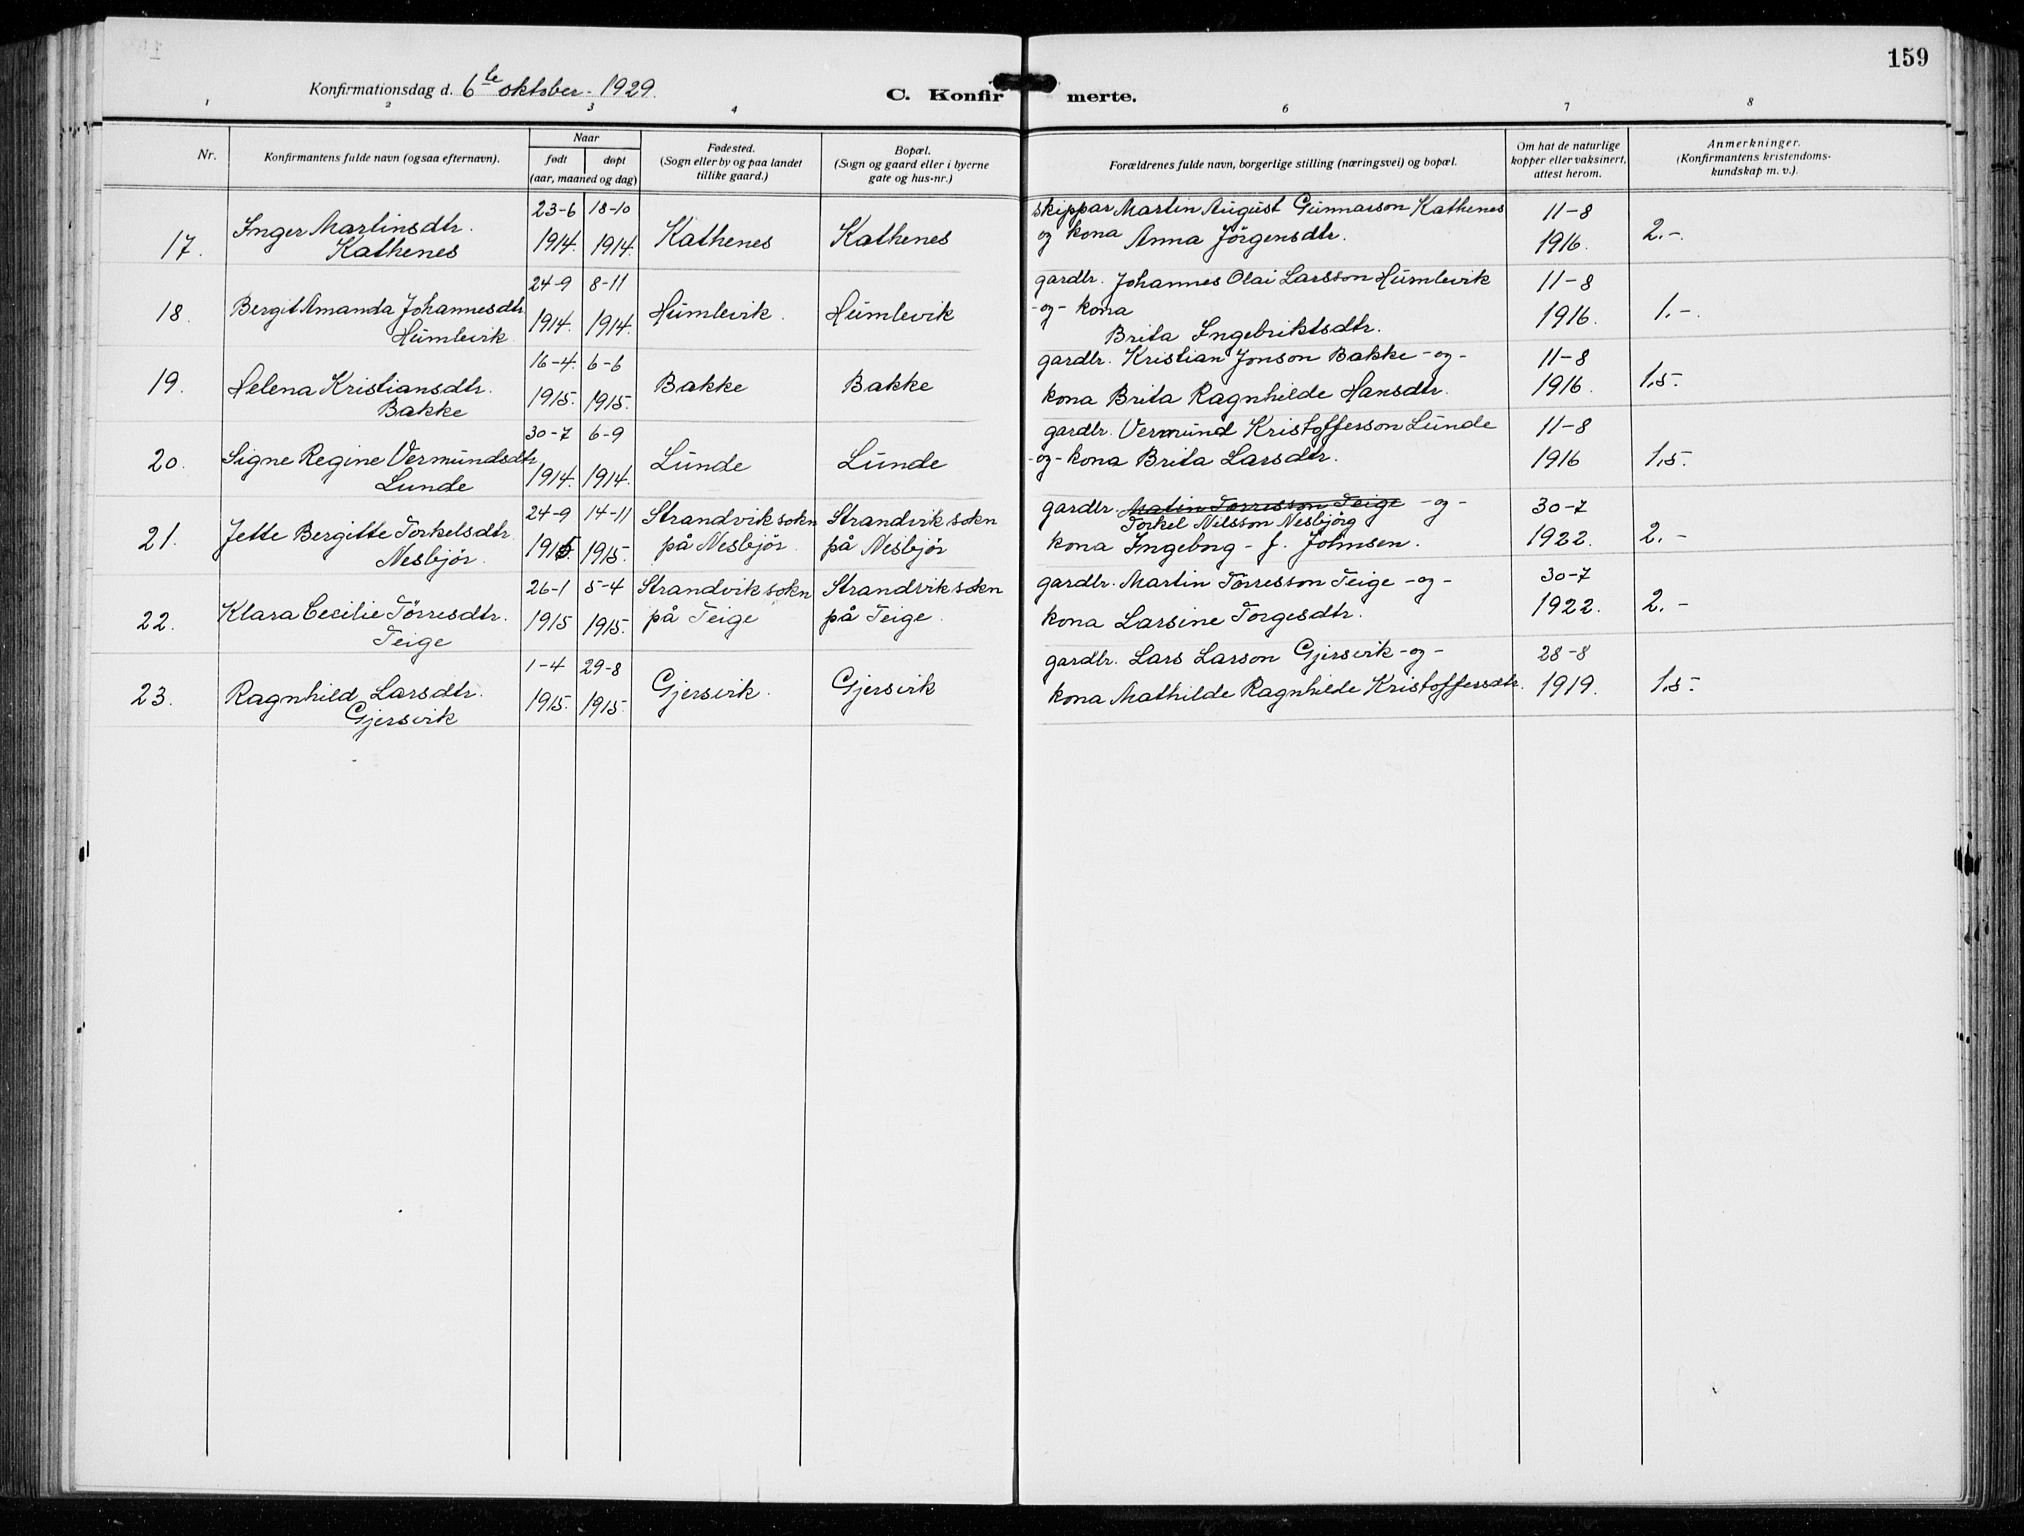 159
Konfirmationsdag d. 6te oktober - 1929.
C. Konfirmerte.
1 2 3 4 6 7 8
Nr.
Konfirmantens fulde navn (ogsaa efternavn).
Naar
født døpt
(aar, maaned og dag)
Fødested.
(Sogn eller by og paa landet
tillike gaard.)
Bopæl.
(Sogn og gaard eller i byerne
gate og hus-nr.)
Forældrenes fulde navn, borgerlige stilling (næringsvei) og bopæl.
Om hat de naturlige
kopper eller vaksinert,
attest herom.
Anmerkninger.
(Konfirmantens kristendoms-
kundskap m. v.).
23-6 18-10 skippar Martin August Gunnarson Kathenes 11-8
17. Inger Martinsdtr. 1914. 1914. Kathenes Kathenes og kona Anna Jörgensdtr. 1916. 2.-.
Kathenes
24-9 8-11 gardbr. Johannes Olai Larsson Humlevik 11-8
18. Bergit Amanda Johannesdtr 1914. 1914. Humlevik. Humlevik -og- kona 1916. 1.-.
Humlevik. Brita Ingebriktsdtr.
16-4. 6-6 gardbr. Kristian Jonson Bakke -og- 11-8
19. Helena Kristiansdtr. 1915. 1915. Bakke Bakke kona Brita Ragnhilde Hansdtr. 1916. 1,5.
Bakke
30-7 6-9 gardbr. Vermund Kristofferson Lunde 11-8
20. Signe Regine Vermundsdtr 1914. 1914. Lunde Lunde -og- kona Brita Larsdtr. 1916 1,5.
Lunde
24-9 14-11 Strandvik sokn Strandvik sokn gardbr. Matin Torresson Teige -og- 30-7
Torkel Nilsson Nesbjörg
21. Jette Bergitte Torkelsdtr 1915. 1915. på Nesbjör. på Nesbjör kona Ingeborg - f. Johnsen. 1922. 2.-
Nesbjör.
26-1 5-4 Strandvik sokn Strandvik sokn gardbr. Martin Törresson Teige -og- 30-7
22. Klara Cecilie Törresdtr. 1915 1915. på Teige på Teige. kona Larsine Torgesdtr. 1922. 2.-
Teige
1-4 29-8 gardbr. Lars Larson Gjersvik -og- 28-8
23. Ragnhild Larsdtr. 1915. 1915. Gjersvik. Gjersvik kona Mathilde Ragnhilde Kristoffersdtr. 1919. 1,5.
Gjersvik